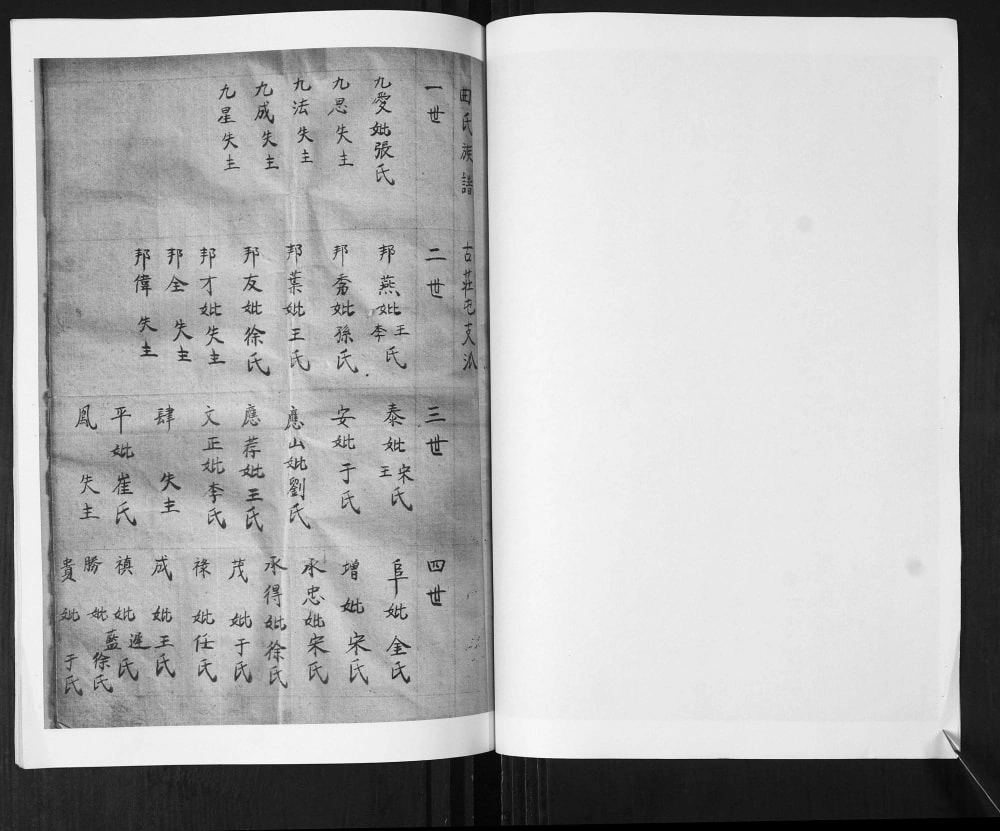 曲氏族譜 古莊屯支派
一世
九愛妣張氏
九思失主
九法失主
九成失主
九星失主
二世
邦燕妣王李氏
邦秀妣孫氏
邦葉妣王氏
邦友妣徐氏
邦才妣失主
邦全失主
邦偉失主
三世
泰妣宋王氏
安妣于氏
應山妣劉氏
應荐妣王氏
文正妣李氏
肆失主
平妣崔氏
鳳失主
四世
阜妣金氏
增妣宋氏
承忠妣宋氏
承得妣徐氏
茂妣于氏
祿妣任氏
成妣王氏
禎妣遲藍氏
勝妣徐氏
貴妣于氏